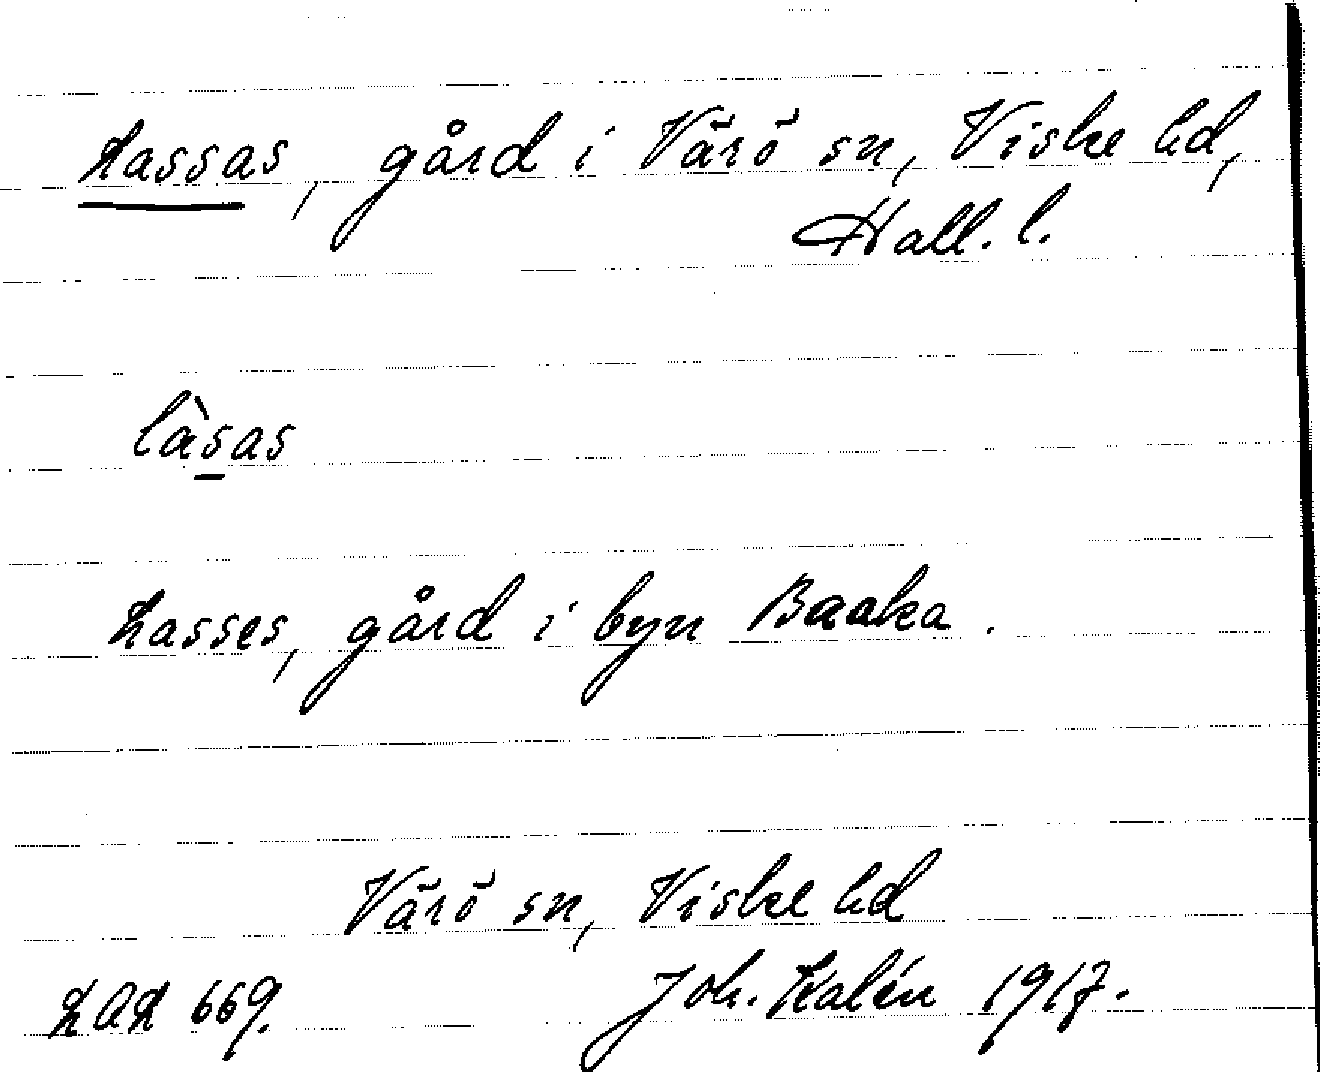 Lassas, gård i Värö sn, Viske hd,
Hall. l.
làsas
Lasses, gård i byn Backa.
Värö sn, Viske hd
LAL 669. Joh. Kalén 1917.